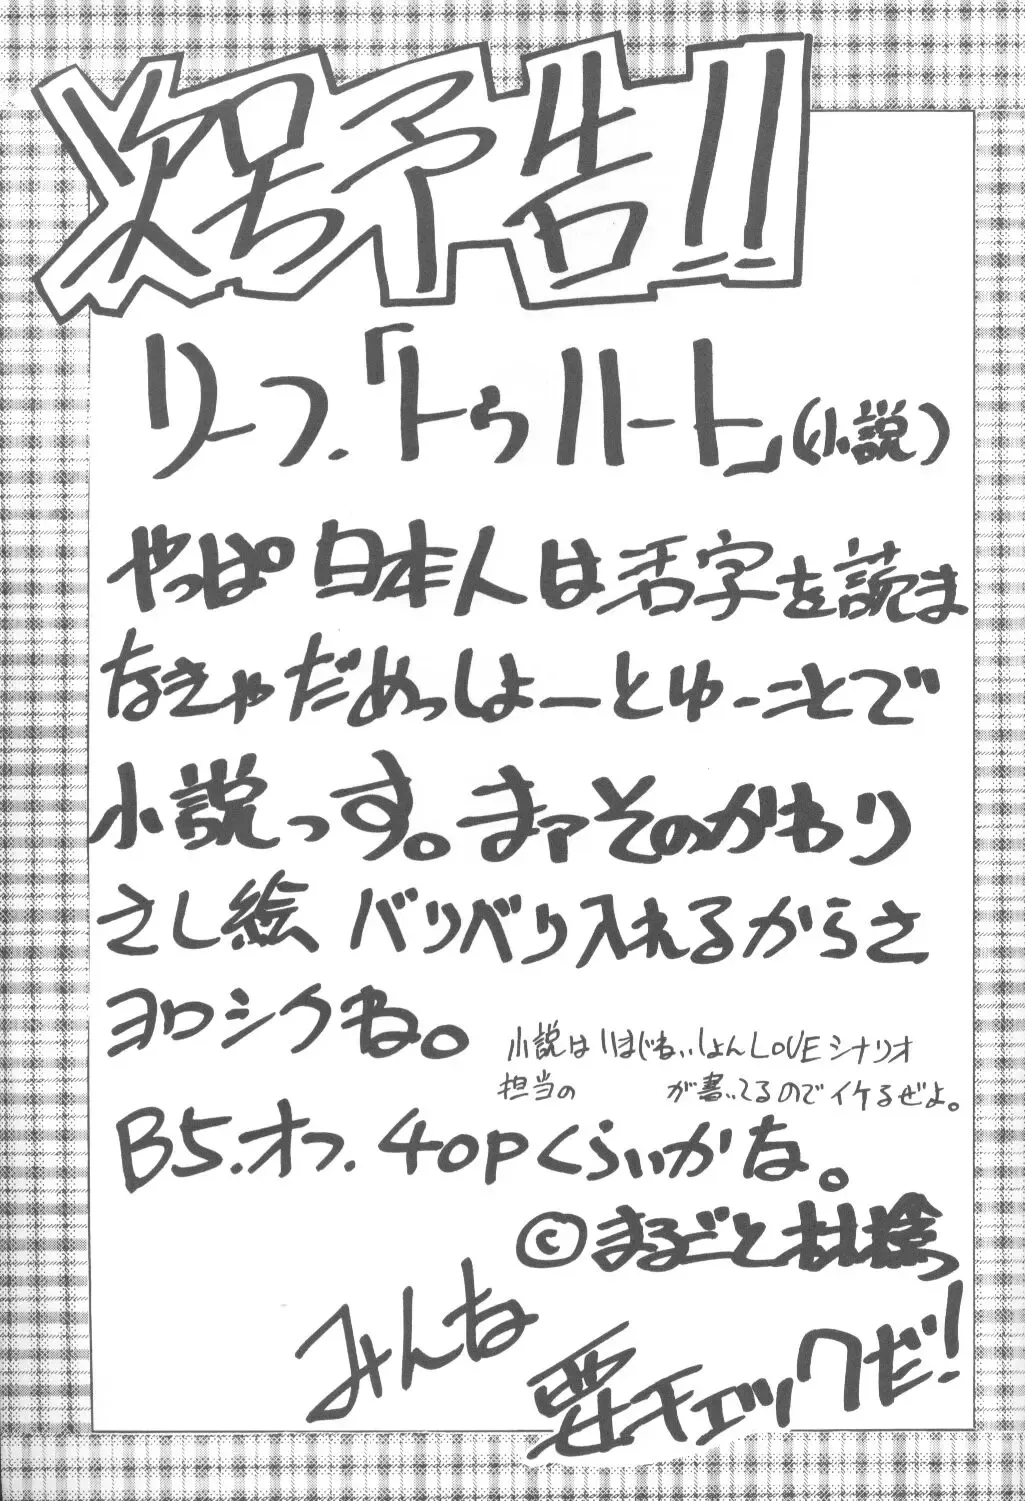 次号予告!!
リーフ.「トゥハート」(小説)
やっぱ。日本人は活字を読ま
なきゃだめっしょーとゆーことで
小説っす。まァそのかわり
さし絵 バリバリ入れるからさ
ヨロシクね。
小説はいまじねぃしょんLOVEシナリオ
担当の が書いてるのでイケるぜよ。
B5.オフ.40pくらいかな。
©まるごと
みんな
要チェックだ!